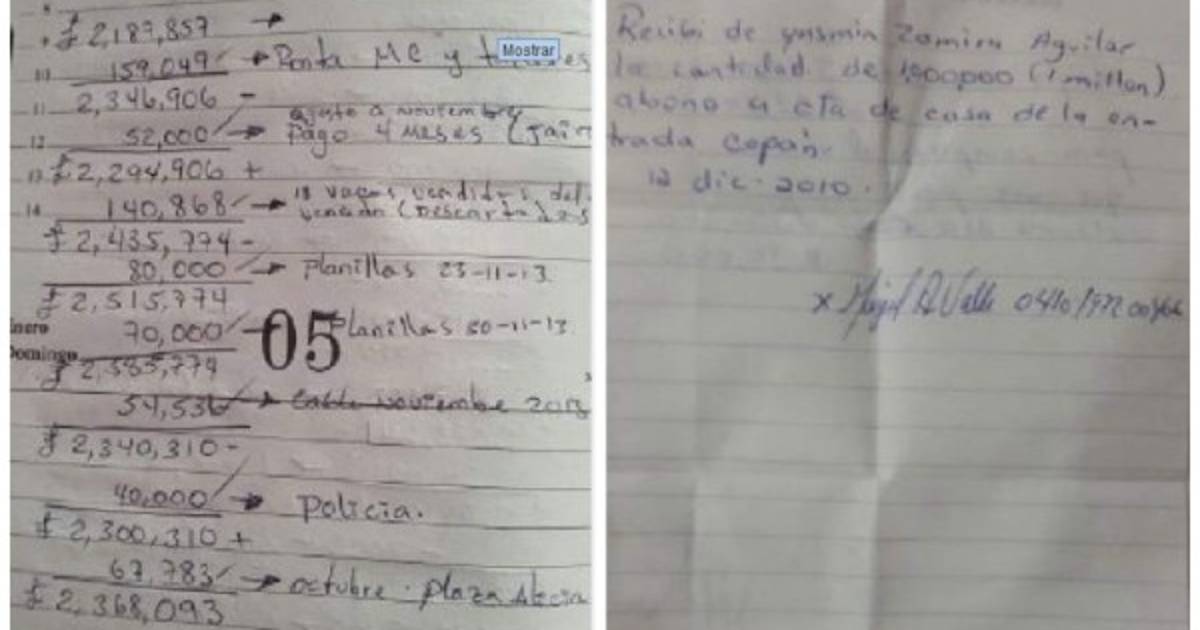 £ 2,187,857 →
10 159,049 → Renta MC y
Mostrar
11 2,346,906 -
ajuste a noviembre
12 52,000 → Pago 4 Meses (Jair
13 £ 2,294,906 +
18 vacas vendidas del
14 140,868 → (Descarte)
£ 2,435,774 -
80,000 → Planillas 23-11-13
£ 2,515,774
Enero 70,000 → Planillas 30-11-13
05
Domingo
£ 2,385,774
54,536 → Noviembre 2013
£ 2,340,310 -
40,000 → Policia.
£ 2,300,310 +
67,783 → octubre. Plaza
£ 2,368,093
Recibi de yasmin Zamira Aguilar
la cantidad de 1,000000 (1 millon)
abono a cta de casa de la en-
trada Copán.
12 dic-2010.
x A Valle